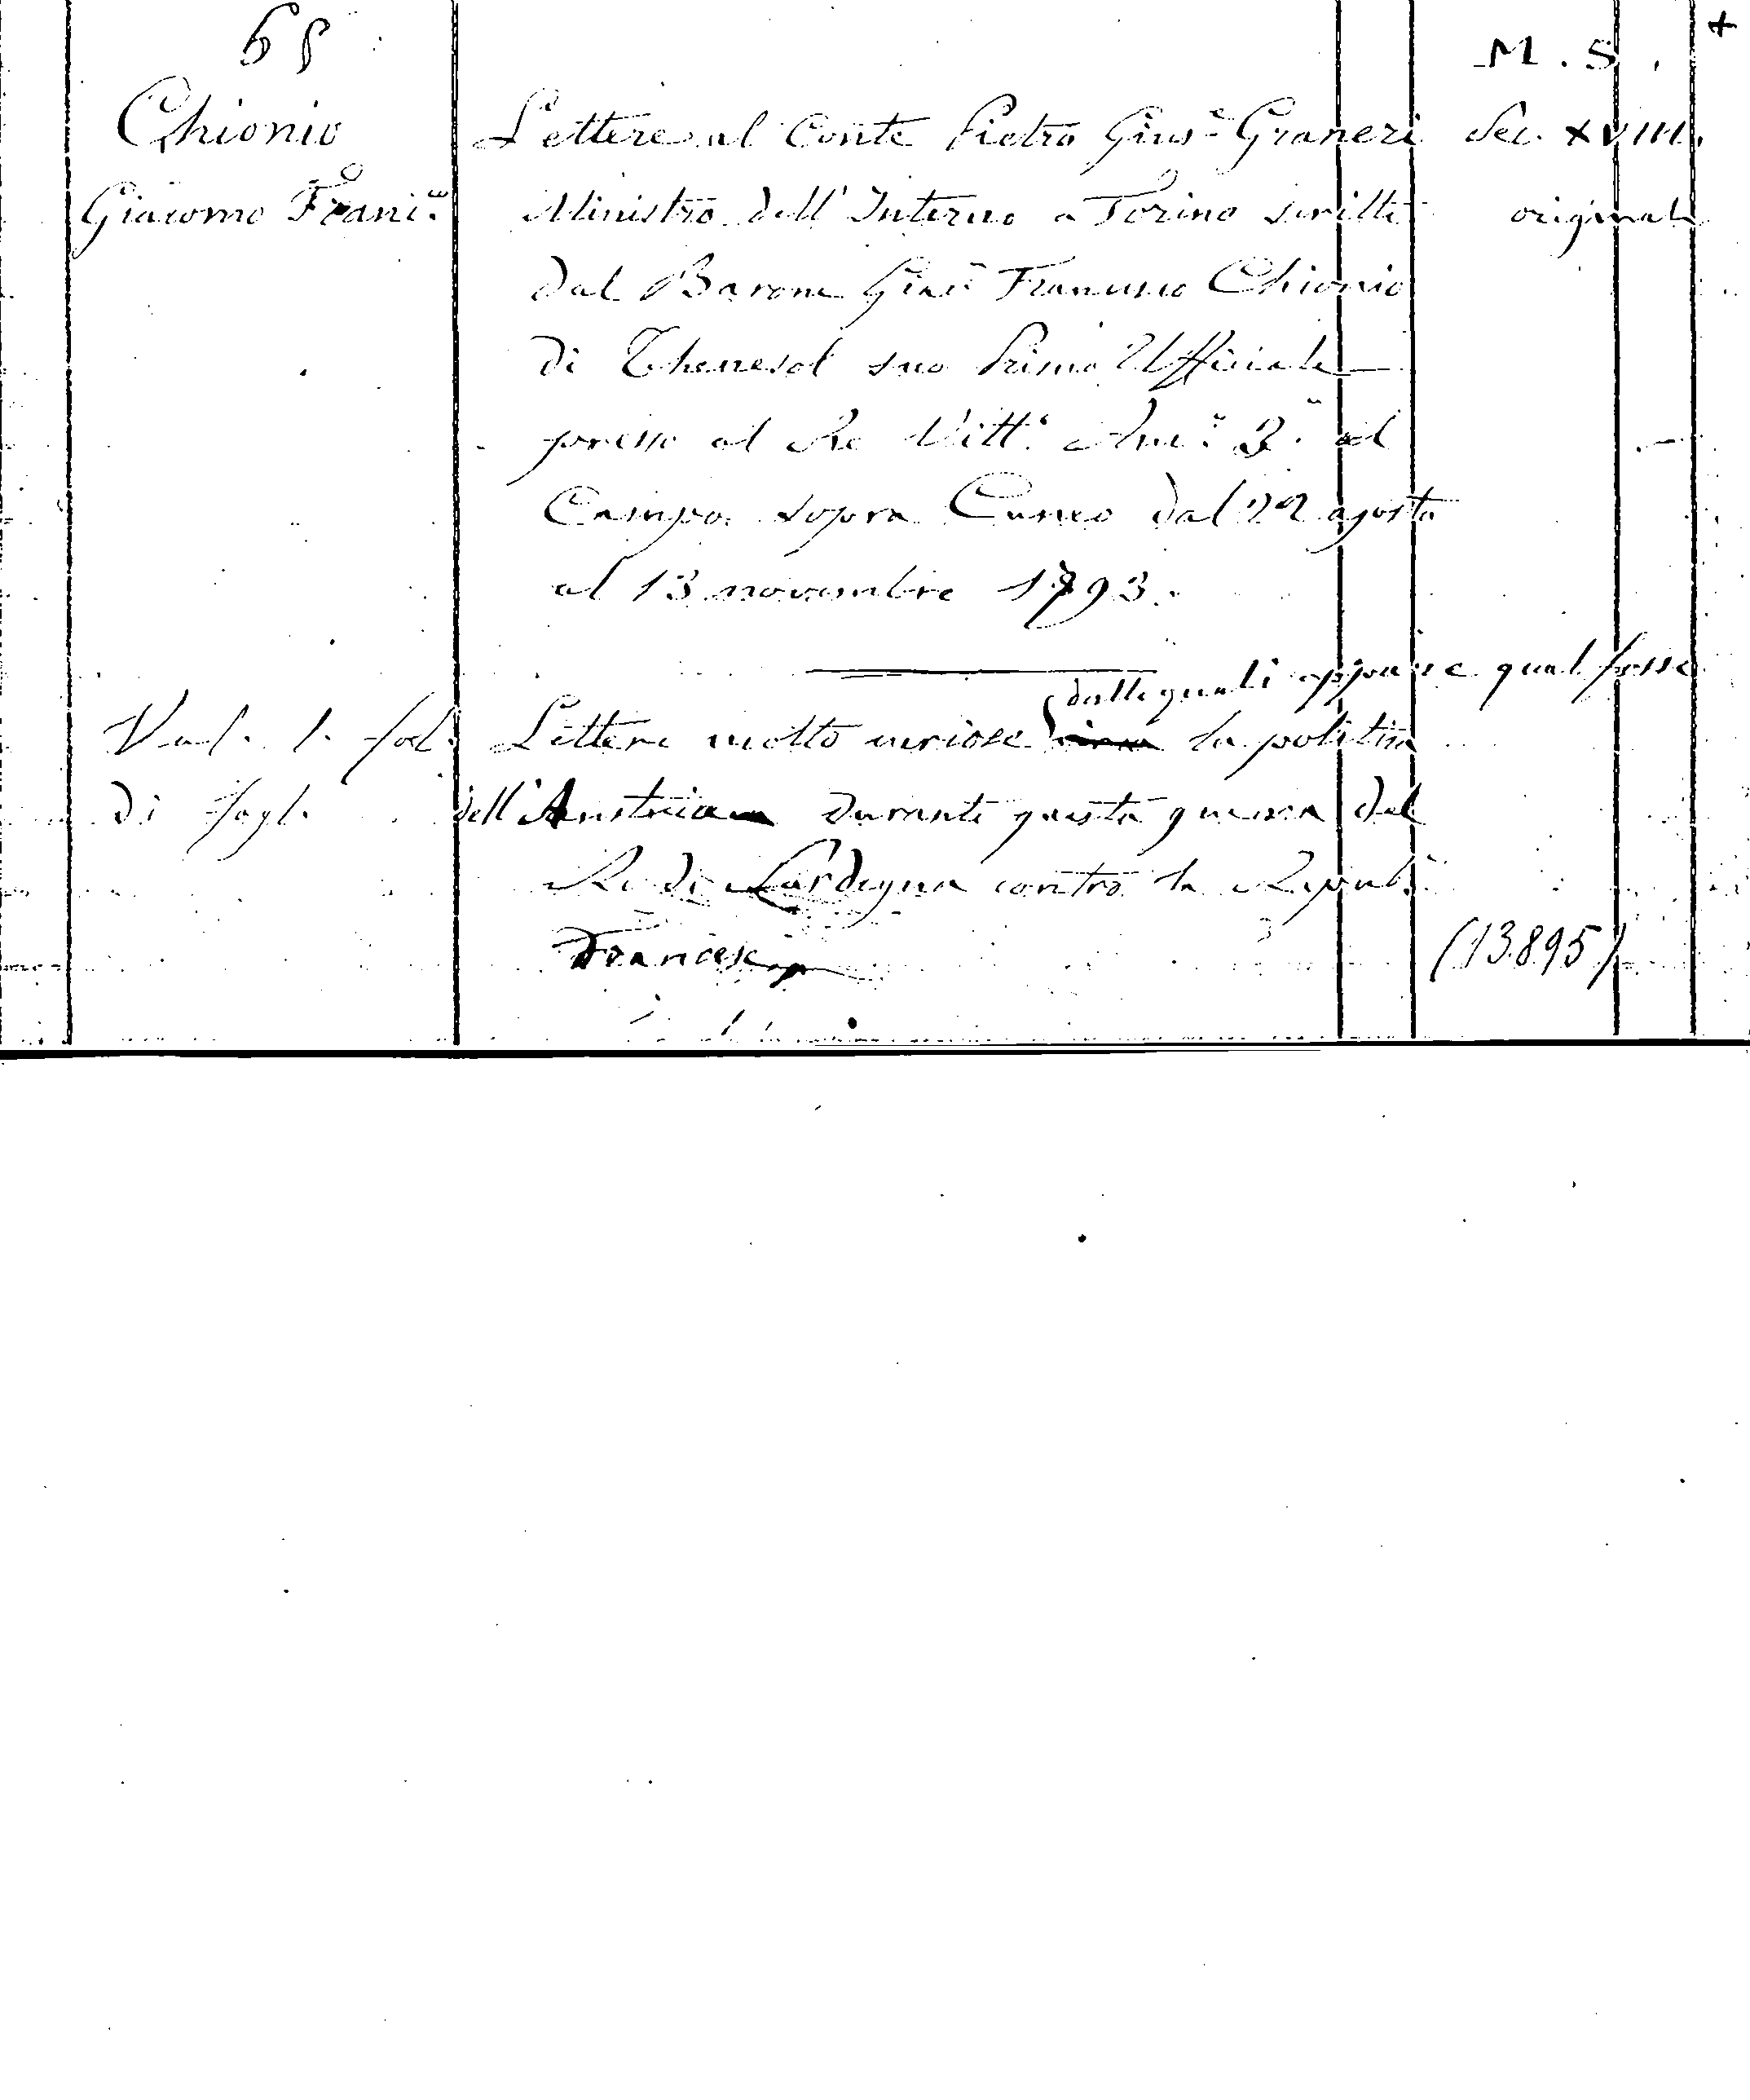 65
M. S. +
Chionio
Lettere al Conte Pietro Giuse Graneri
Sec. XVIII.
Giacomo Franc.co
Ministro dell' Interno a Torino scritte
originali
dal Barone Giac.o Francesco Chionio
di Thenesol suo Primo Ufficiale
presso al Re Vitt.o Am.o 3.o al
Campo sopra Cuneo dal 22 agosto
al 13 novembre 1793.
dalle quali appare qual fosse
Vol. 1. fol.
Lettere molto curiose circa la politica
di fogl.
dell'Austria durante questa guerra del
Re di Sardegna contro la Repub.
Francese
(13.895)